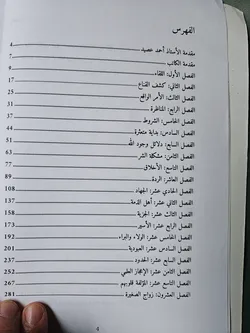 الفهرس
مقدمة الأستاذ أحمد عصيد 4
مقدمة الكاتب 7
الفصل الأول: اللقاء 9
الفصل الثاني: كشف القناع 17
الفصل الثالث: الأمر الواقع 25
الفصل الرابع: المناظرة 31
الفصل الخامس: الشروط 37
الفصل السادس: بداية متعثرة 51
الفصل السابع: دلائل وجود الله 54
الفصل الثامن: مشكلة الشر 63
الفصل التاسع: الأخلاق 77
الفصل العاشر: الردة 89
الفصل الحادي عشر: الجهاد 108
الفصل الثاني عشر: أهل الذمة 137
الفصل الثالث عشر: الجزية 158
الفصل الرابع عشر: الأسير 173
الفصل الخامس عشر: الولاء والبراء 192
الفصل السادس عشر: العبودية 201
الفصل السابع عشر: الحجر 237
الفصل الثامن عشر: الإعجاز الطبي 252
الفصل التاسع عشر: المؤلفة قلوبهم 267
الفصل العشرون: زواج الصغيرة 281
4